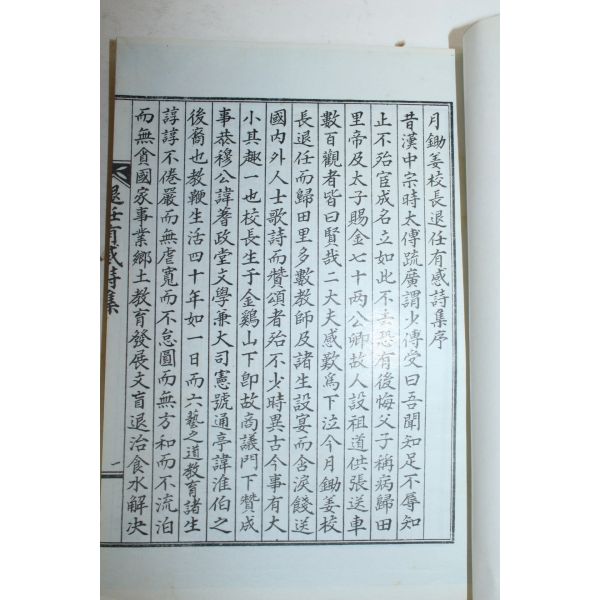 月鋤姜校長退任有感詩集序
昔漢中宗時太傅疏廣謂少傅受曰吾聞知足不辱知
止不殆宦成名立如此不去恐有後悔父子稱病歸田
里帝及太子賜金七十两公卿故人設祖道供張送車
數百觀者皆曰賢哉二大夫感歎爲下泣今月鋤姜校
長退任而歸田里多數教師及諸生設宴而含淚餞送
國內外人士歌詩而贊頌者殆不少時異古今事有大
小其趣一也校長生于金鷄山下卽故商議門下贊成
事恭穆公諱蓍政堂文學兼大司憲號通亭諱淮伯之
後裔也教鞭生活四十年如一日而六藝之道教育諸生
諄諄不倦嚴而無虐寬而不怠圓而無方和而不流泊
而無貪國家事業鄉土教育發展文盲退治食水解决
退任有感詩集
一